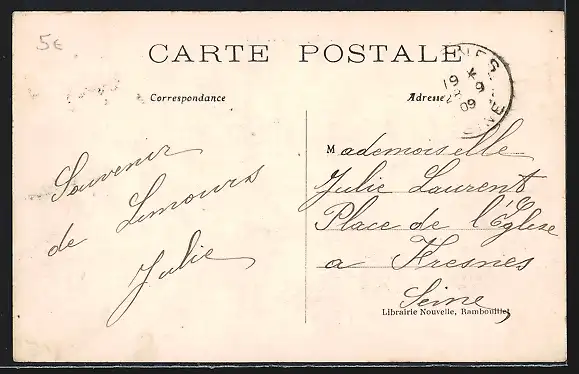 5€
CARTE POSTALE
Correspondance
Adresse
NES
19 *
28 9
09
SEINE
Souvenir
de Limours
Julie
Mademoiselle
Julie Laurent
Place de l'Église
a Fresnes
Seine
Librairie Nouvelle, Rambouillet